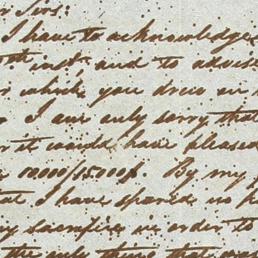 Sirs:
I have to acknowledge
inst. and to advise
which you drew on
I am only sorry that
it would have pleased
10000/15000$. By my
I have spared no
sacrifice in order to
the only thing that was